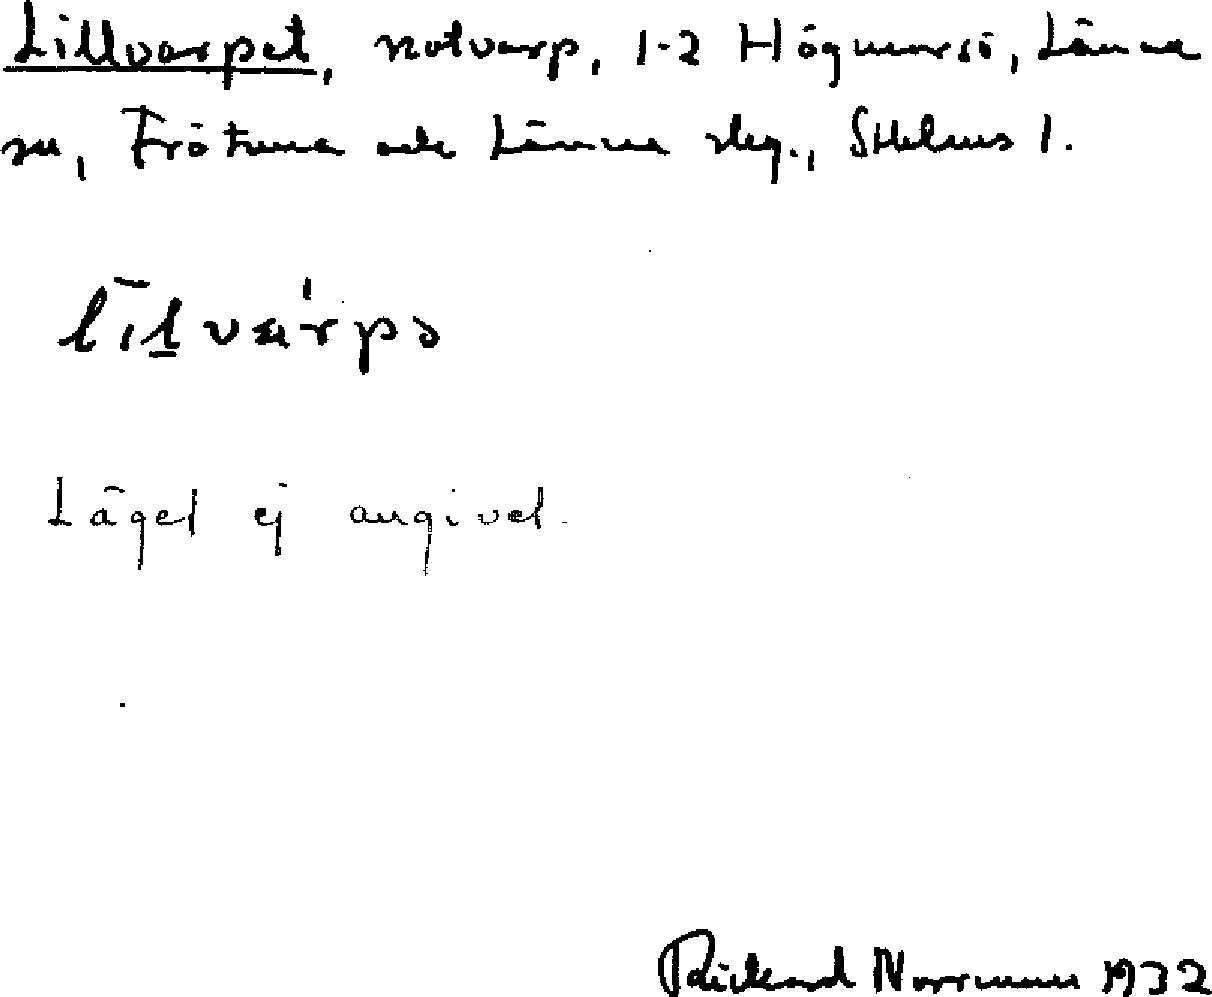 Lillvarpet, notvarp, 1-2 Högmarsö, Länna
sn, Frötuna och Länna skg., Sthlms l.
lìl̠varpə
Läget ej angivet.
Rickard Norrman 1932